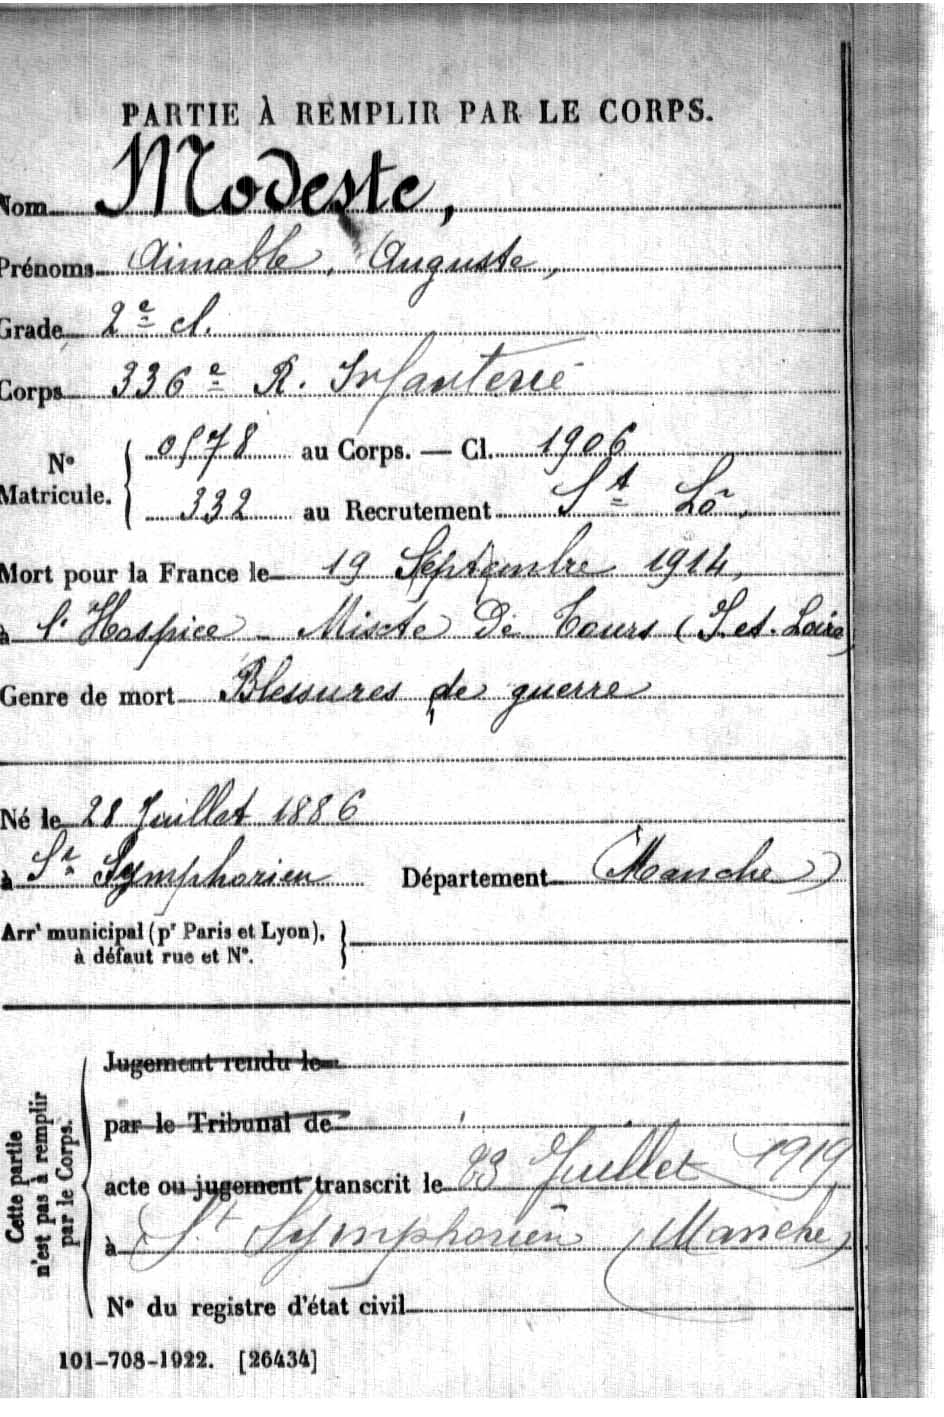 PARTIE À REMPLIR PAR LE CORPS.
Nom Modeste,
Prénoms Aimable, Auguste,
Grade 2e cl.
Corps 336e R. Infanterie
No Matricule. { 0578 au Corps. — Cl. 1906
332 au Recrutement St Lô.
Mort pour la France le 19 Septembre 1914,
à l'Hospice - Mixte de Tours (I. et. Loire)
Genre de mort Blessures de guerre
Né le 28 Juillet 1886
à St Symphorien Département (Manche)
Arrt municipal (pr Paris et Lyon), }
à défaut rue et No.
Cette partie
n'est pas à remplir
par le Corps.
Jugement rendu le
par le Tribunal de
acte ou jugement transcrit le 23 Juillet 1919
à St Symphorien (Manche)
No du registre d'état civil
101-708-1922. [26434]